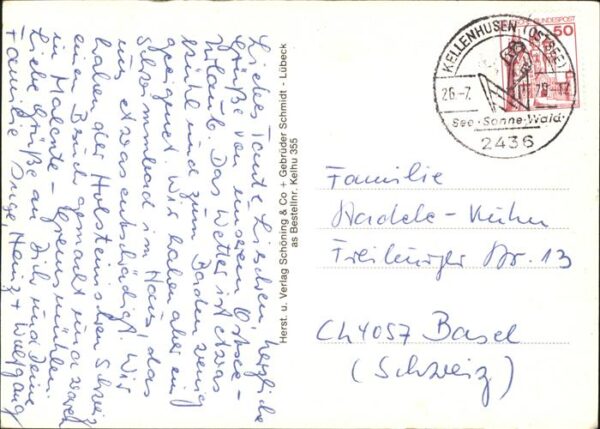 Liebes Tante Lieschen, herzliche
Grüße von unserem Ostsee-
Urlaub. Das Wetter ist etwas
kühl und zum Baden wenig
geeignet. Wir haben aber ein
Schwimmbad im Haus, das
uns etwas entschädigt. Wir
haben der Holsteinischen Schweiz
einen Besuch gemacht u. a. waren
in Malente - Gremsmühlen.
Liebe Grüße an Dich und Deine
Familie Inge, Heinz + Wolfgang
Herst. u. Verlag Schöning & Co + Gebrüder Schmidt - Lübeck
as Bestellnr. Kelhu 355
KELLENHUSEN (OSTSEE)
26.-7.
78-17
See·Sonne·Wald·
2436
DEUTSCHE BUNDESPOST
50
Familie
Kuhn
Freiburger Str. 13
CH 4057 Basel
(Schweiz)